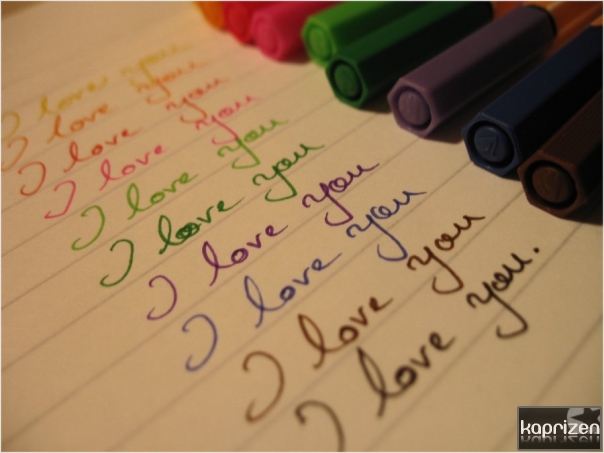 I love you
I love you
I love you
I love you
I love you
I love you
I love you
I love you
I love you
I love you.
kaprizen